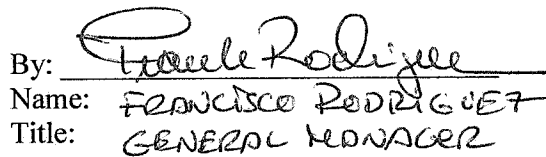 By: Frank Rodriguez
Name: FRANCISCO RODRIGUEZ
Title: GENERAL MANAGER